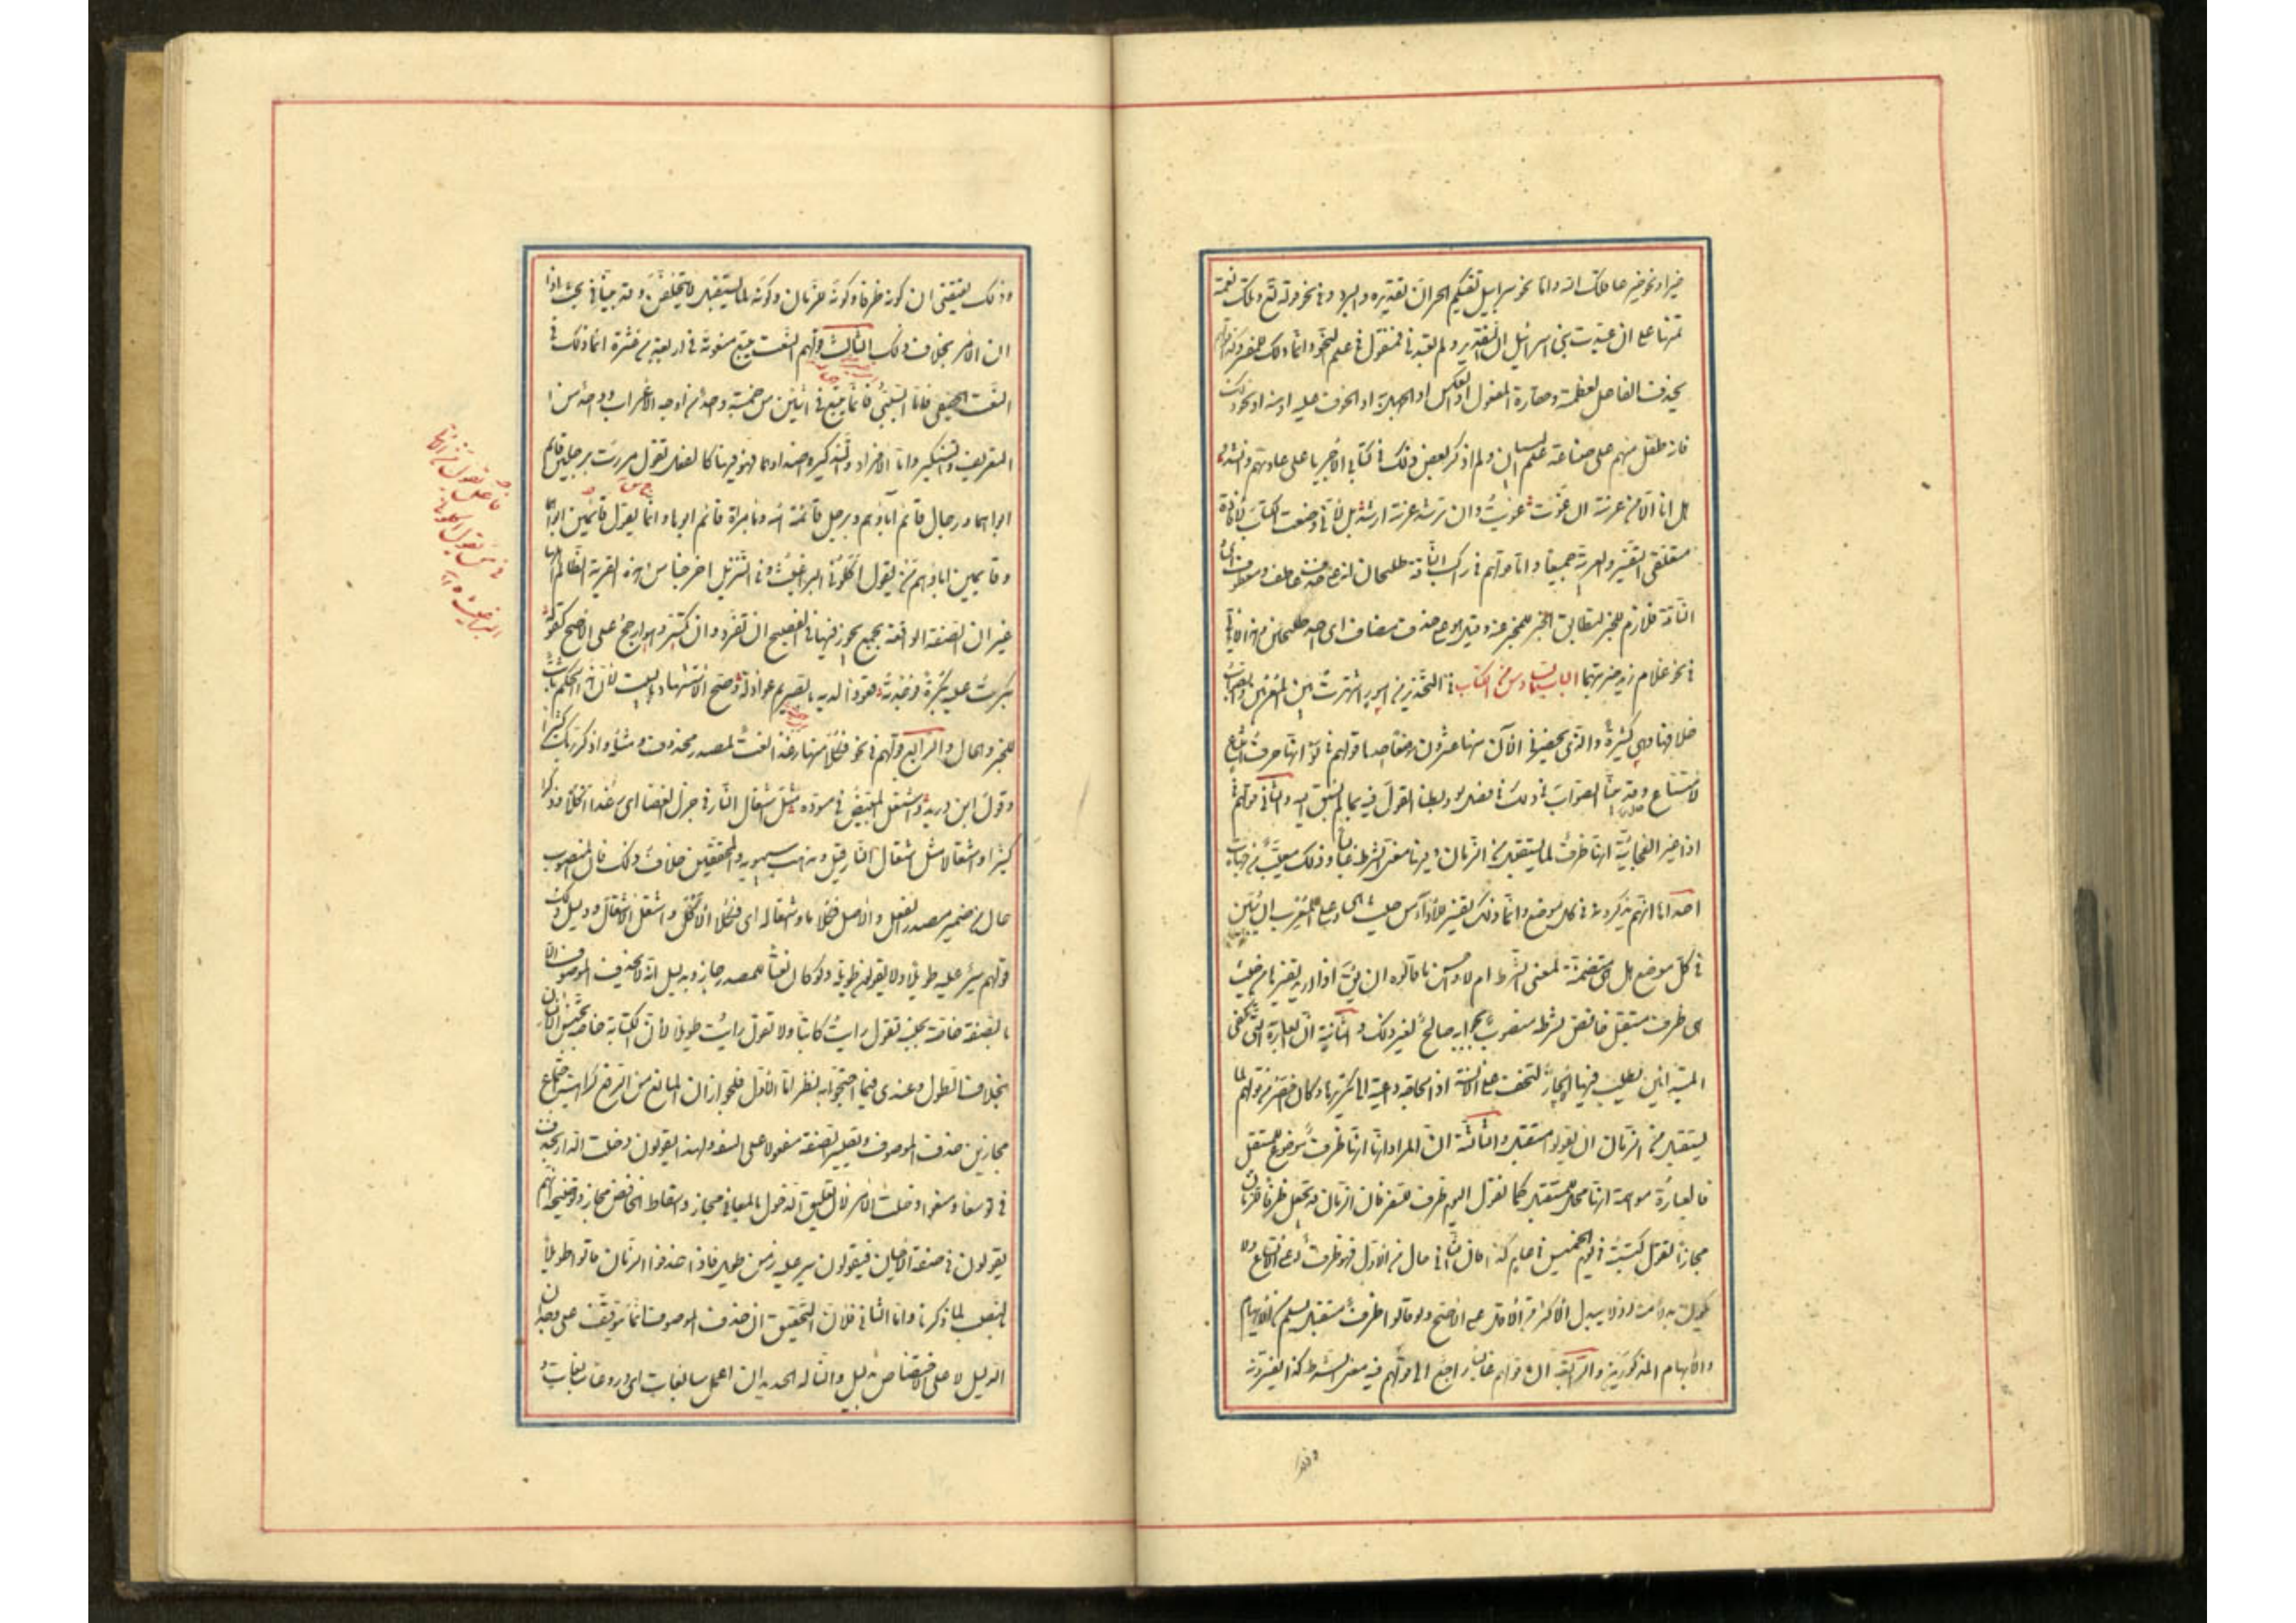 خيرا ونحو خير عافاك الله واما نحو سرابيل تقيكم الحر ان تقديره والبرد وفى نحو قوله تع وتلك نعمة
تمنها على ان عبدت بنى اسرائيل ان التقدير ولم تعبدنى ففضول فى علم النحو وانما ذلك للمفسر وكذا قولهم
يحذف الفاعل لعظمته وحقارة المفعول او بالعكس او للجهل به او للخوف عليه او منه او نحو ذلك
فانه تطفل منهم على صناعة علم البيان ولم اذكر بعض ذلك فى كتابى الا جريا على عادتهم وانشد
بل انا الا من غزية ان غوت غويت وان ترشد غزية ارشد بل لانى وضعت الكتاب لافادة
متعلقى التفسير والعربية جميعا واما قولهم فى راكب الناقة طليحان انه على حذف عاطف ومعطوف اى
الناقة فلازم لهم ليطابق الخبر المخبر عنه وقيل هو على حذف مضاف اى احد طليحين وهذا لا يتاتى
فى نحو غلام زيد ضربتهما الباب السادس من الكتاب فى التحذير من امور اشتهرت بين المعربين والصواب
خلافها وهى كثيرة والذى يحضرنى الآن منها عشرون موضعا احدها قولهم فى لو انها حرف امتناع
لامتناع وقد بينا الصواب فى ذلك فى فصل لو وبسطنا القول فيه بما لم نسبق اليه والثانى قولهم فى
اذا غير الفجائية انها ظرف لما يستقبل من الزمان وفيها معنى الشرط غالبا وذلك معيب من جهات
احدها انهم يذكرونه فى كل موضع وانما ذلك تفسير للاداة من حيث هى وعلى المعرب ان يبين
فى كل موضع هل هى متضمنة لمعنى الشرط ام لا واحسن مما قالوه ان يق اذا اريد تفسيرها من حيث
هى ظرف مستقبل خافض لشرطه منصوب بجوابه صالح لغير ذلك والثانية ان العبارة التى تلقى
للمبتدئين يطلب فيها الايجاز لتخف على الالسنة اذ الحاجة داعية الى تكريرها وكان اخصر من قولهم لما
يستقبل من الزمان ان يقولوا مستقبل والثالثة ان المراد انها ظرف موضوع للمستقبل
فالعبارة موهمة انها محل للمستقبل كما نقول اليوم ظرف للسفر فان الزمان قد يجعل ظرفا للزمان
مجازا تقول كتبته فى يوم الخميس فى عام كذا فان الثانى حال من الاول فهو ظرف له على الاتساع ولا
يكون بدلا منه اذ لا يبدل الاكثر من الاقل على الاصح ولو قالوا ظرف مستقبل لسلم من الايهام
والابهام المذكورين والرابعة ان قولهم غالبا راجع الى قولهم فيه معنى الشرط كذا يفسرونه
وذلك
وذلك يقتضى ان كونه ظرفا وكونه للزمان وكونه لما يستقبل لا يتخلفن وقد بينا فى بحث اذا
ان الامر بخلاف ذلك الثالث قولهم النعت يتبع منعوته فى اربعة من عشرة انما ذلك فى
النعت الحقيقى فاما السببى فانما يتبع فى اثنين من خمسة واحد من اوجه الاعراب وواحد من
التعريف والتنكير واما الافراد والتذكير وضداهما فهو فيها كالفعل تقول مررت برجلين قائم
ابواهما وبرجال قائم آباؤهم وبرجل قائمة امه وبامراة قائم ابوها وانما يقول قائمين ابواهما
وقائمين اباؤهم من يقول اكلونى البراغيث وفى التنزيل اخرجنا من هذه القرية الظالم اهلها
غير ان الصفة الواقعة بجمع يجوز فيها فى الفصيح ان تفرد وان تكسر وهو ارجح على الاصح كقوله
بكرت عليه بكرة فوجدته قعودا لديه بالصريم عواذله وصح الاستشهاد بالبيت لان هذا الحكم ثابت
للخبر والحال والرابع قولهم فى نحو فكلا منها رغدا نعت لمصدر محذوف ومثله واذكر ربك كثيرا
وقول ابن دريد واشتعل المبيض فى مسوده مثل اشتعال النار فى جزل الغضا اى رغدا اكلا وذكرا
كثيرا واشتعالا مثل اشتعال النار قيل ومذهب سيبويه والمحققين خلاف ذلك فان المنصوب
حال من ضمير مصدر الفعل والاصل فكلاه واشتعاله اى فكلا الاكل واشتعل الاشتعال ودليل ذلك
قولهم سير عليه طويلا ولا يقولون طويل ولو كان نعتا للمصدر جاز وبدليل انه لا يحذف الموصوف الا
بالصفة خاصة بجنسه تقول رايت كاتبا ولا تقول رايت طويلا لان الكتابة خاصة بجنس الانسان
بخلاف الطول وعندى فيما احتجوا به نظر اما الاول فلجواز ان المانع من الرفع كراهية اجتماع
مجازين حذف الموصوف وتصيير الصفة مفعولا على السعة ولهذا يقولون دخلت الدار بحذف
فى توسعا ومنعوا دخلت الامر لان تعليق الدخول بالمعانى مجاز واسقاط الخافض مجاز وتوضيحه انهم
يقولون فى صفة الاحيان فيقولون سير عليه زمن طويل فاذا حذفوا الزمان قالوا طويلا
بالنصب لما ذكرنا واما الثانى فلان التحقيق ان حذف الموصوف انما يتوقف على وجدان
الدليل لا على الاختصاص بدليل والنا له الحديد ان اعمل سابغات اى دروعا سابغات و